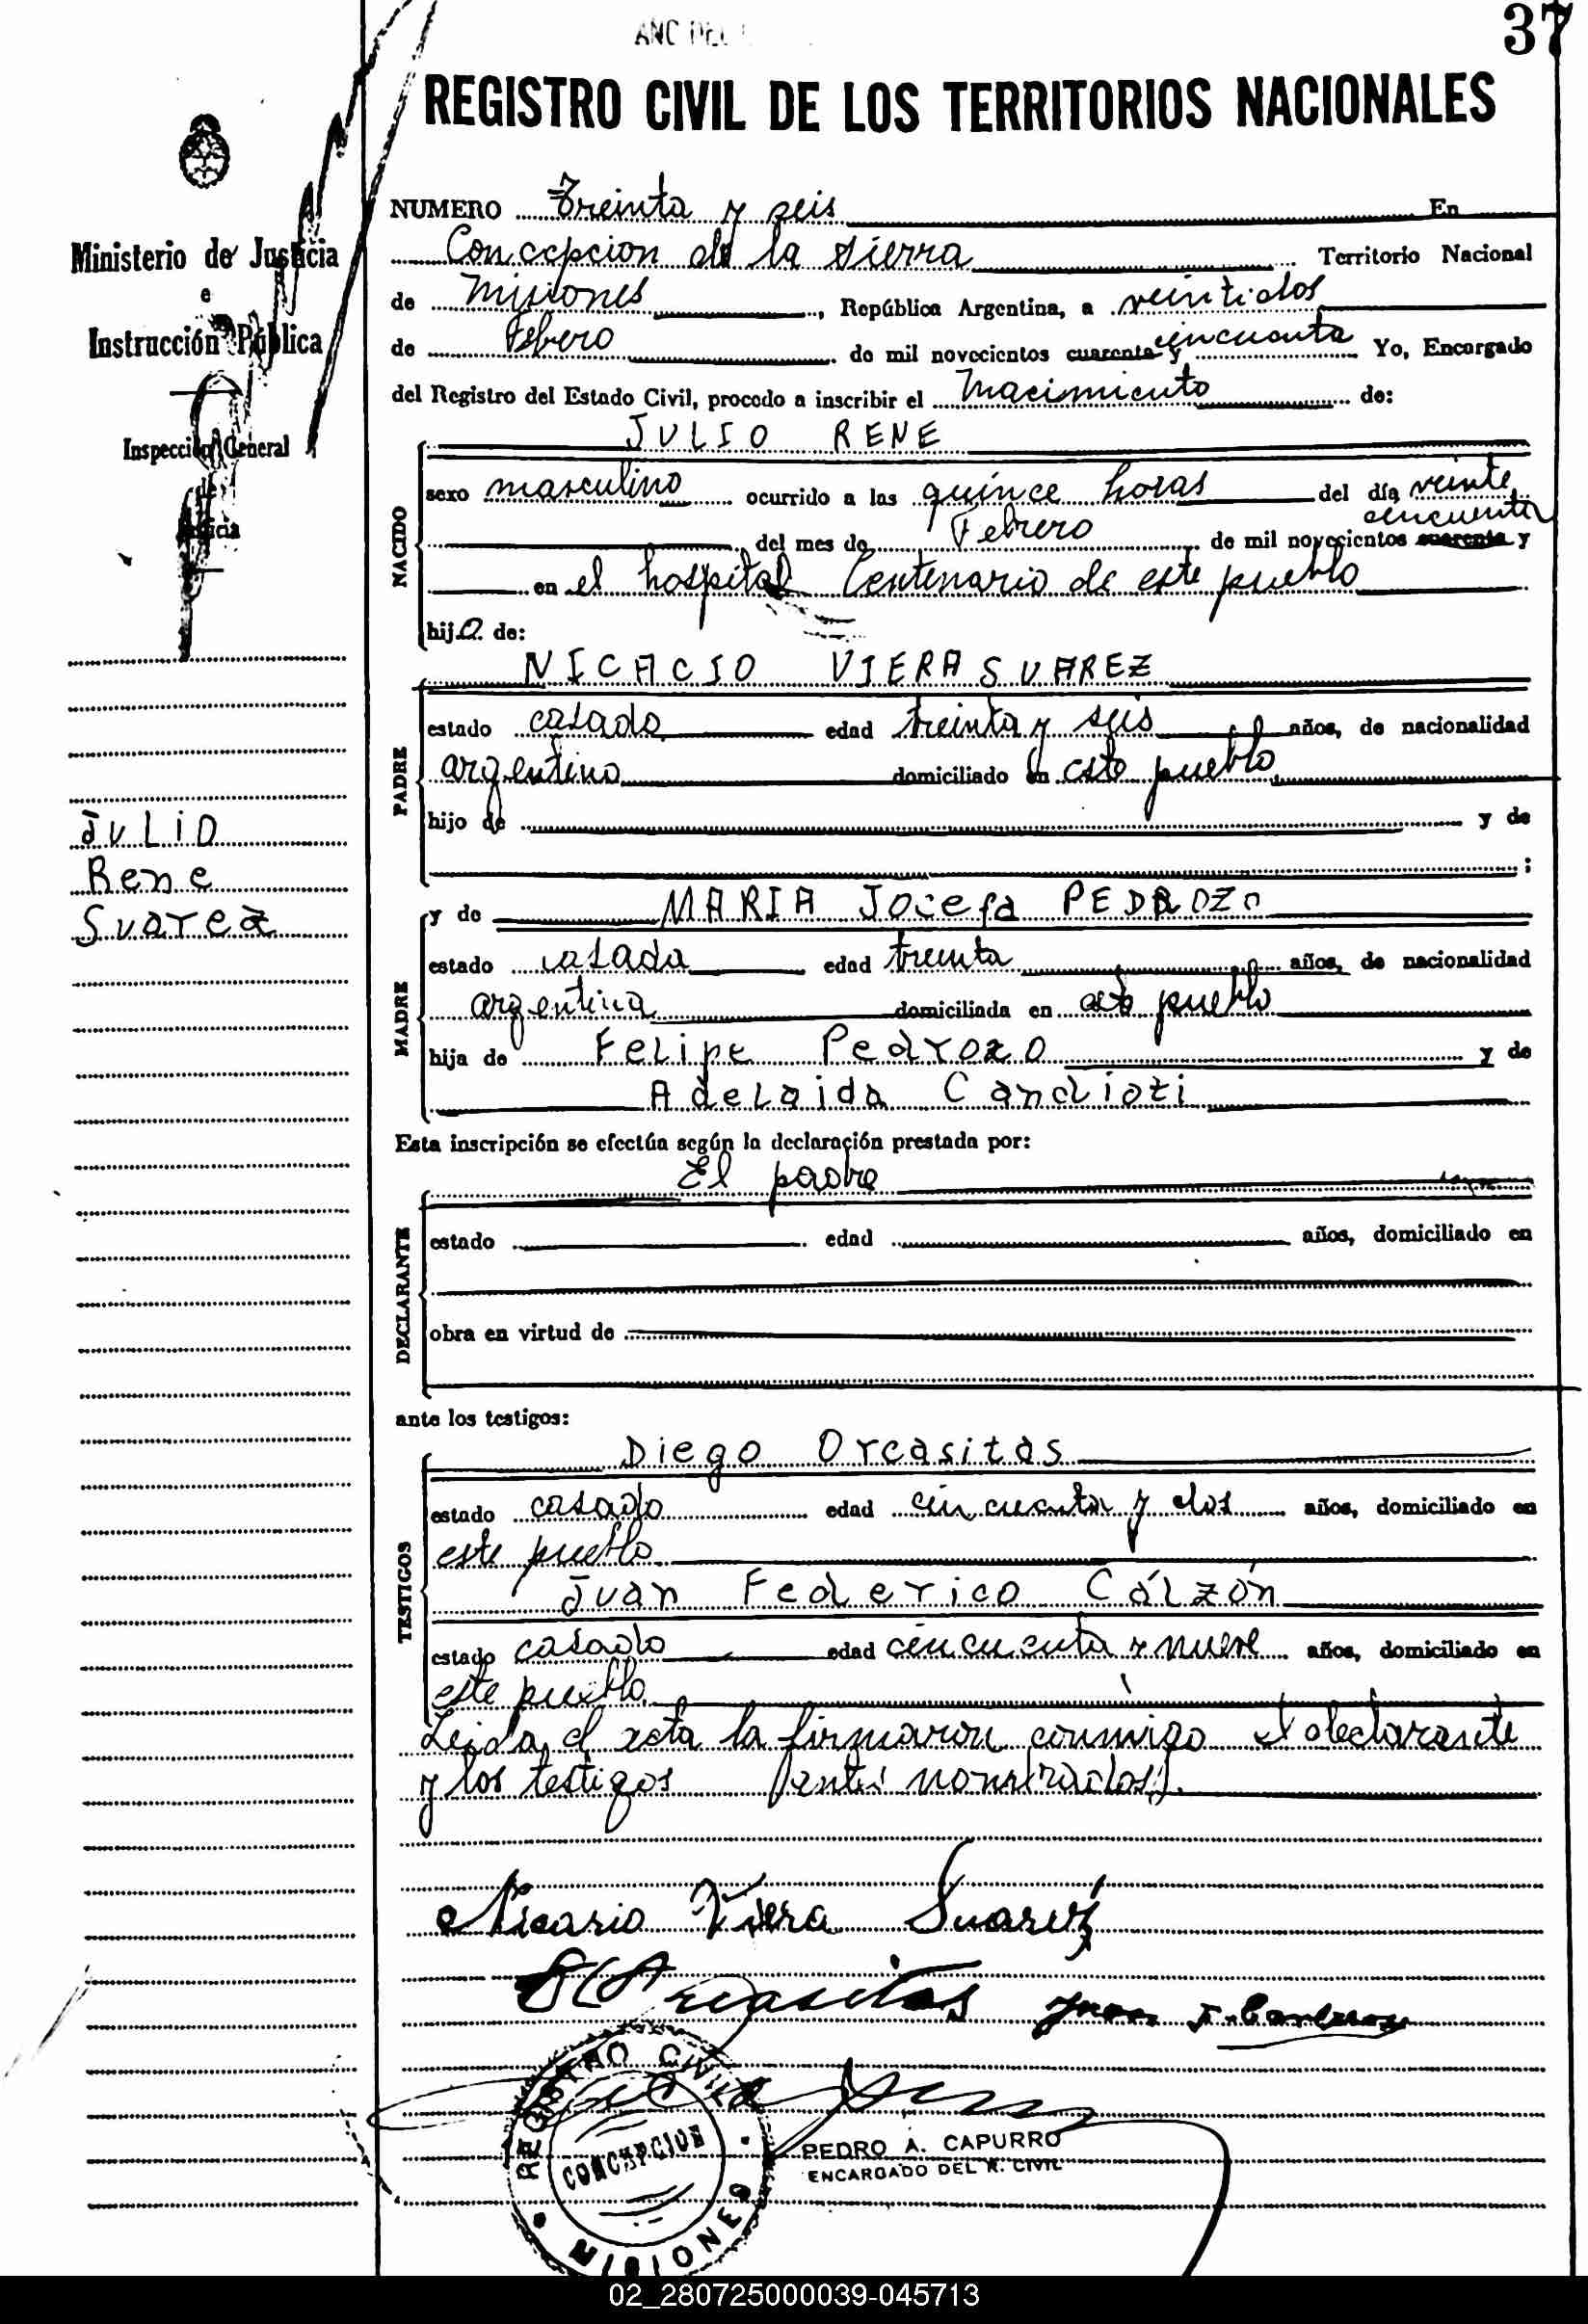 37
REGISTRO CIVIL DE LOS TERRITORIOS NACIONALES
Ministerio de Justicia
e
Instrucción Pública
Inspección General
Justicia
JULIO
Rene
Suarez
NUMERO Treinta y seis En
Concepcion de la Sierra Territorio Nacional
de Misiones, República Argentina, a veintidos
de Febrero de mil novecientos cuarenta y cincuenta Yo, Encargado
del Registro del Estado Civil, procedo a inscribir el Nacimiento de:
NACIDO
JULIO RENE
sexo masculino ocurrido a las quince horas del día veinte
del mes de Febrero de mil novecientos cuarenta y cincuenta
en el hospital Centenario de este pueblo
hijo de:
PADRE
NICACIO VIERA SUAREZ
estado casado edad treinta y seis años, de nacionalidad
argentino domiciliado en este pueblo
hijo de y de
;
MADRE
y de MARIA Jocefa PEDROZO
estado casada edad treinta años, de nacionalidad
argentina domiciliada en este pueblo
hija de Felipe Pedrozo y de
Adelaida Candioti
Esta inscripción se efectúa según la declaración prestada por:
DECLARANTE
El padre
estado edad años, domiciliado en
obra en virtud de
ante los testigos:
TESTIGOS
Diego Orcasitas
estado casado edad cincuenta y dos años, domiciliado en
este pueblo
Juan Federico Cálzón
estado casado edad cincuenta y nueve años, domiciliado en
este pueblo
Leida el acta la firmaron conmigo el declarante
y los testigos antes nombrados.
Nicasio Viera Suarez
Orcasitas Juan F.
REGISTRO CIVIL
CONCEPCION
MISIONES
PEDRO A. CAPURRO
ENCARGADO DEL R. CIVIL
02_280725000039-045713